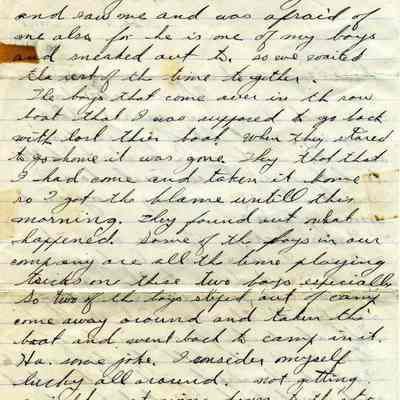 and saw me and was afraid of
me also for he is one of my boys
and sneaked out to. so we waited
the rest of the time together.
The boys that come over in the row
boat that I was supposed to go back
with lost thier boat. When they stared
to go home it was gone. They thot that
I had come and taken it home
so I got the blame untill this
morning. They found out what
happened. Some of the boys in our
company are all the time playing
tricks on these two boys especially
So two of the boys sliped out of camp
come away around and taken the
boat and went back to camp in it.
Ha. some joke. I consider myself
lucky all around. not getting